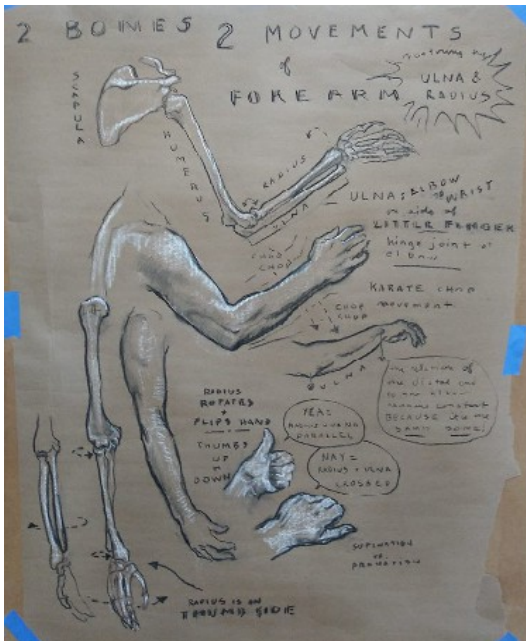 2 BONES 2 MOVEMENTS
of
FOREARM
ULNA &
RADIUS
SCAPULA
HUMERUS
RADIUS
ULNA
ULNA: ELBOW
to WRIST
on side of
LITTLE FINGER
hinge joint at
elbow
CHOP
CHOP
KARATE CHOP
movement
CHOP
CHOP
ULNA
BECAUSE
SAME BONE
RADIUS
ROTATES
+
FLIPS HAND
THUMBS
UP
DOWN
YEA:
RADIUS + ULNA
PARALLEL
NAY =
RADIUS + ULNA
CROSSED
SUPINATION
PRONATION
RADIUS IS ON
THUMB SIDE